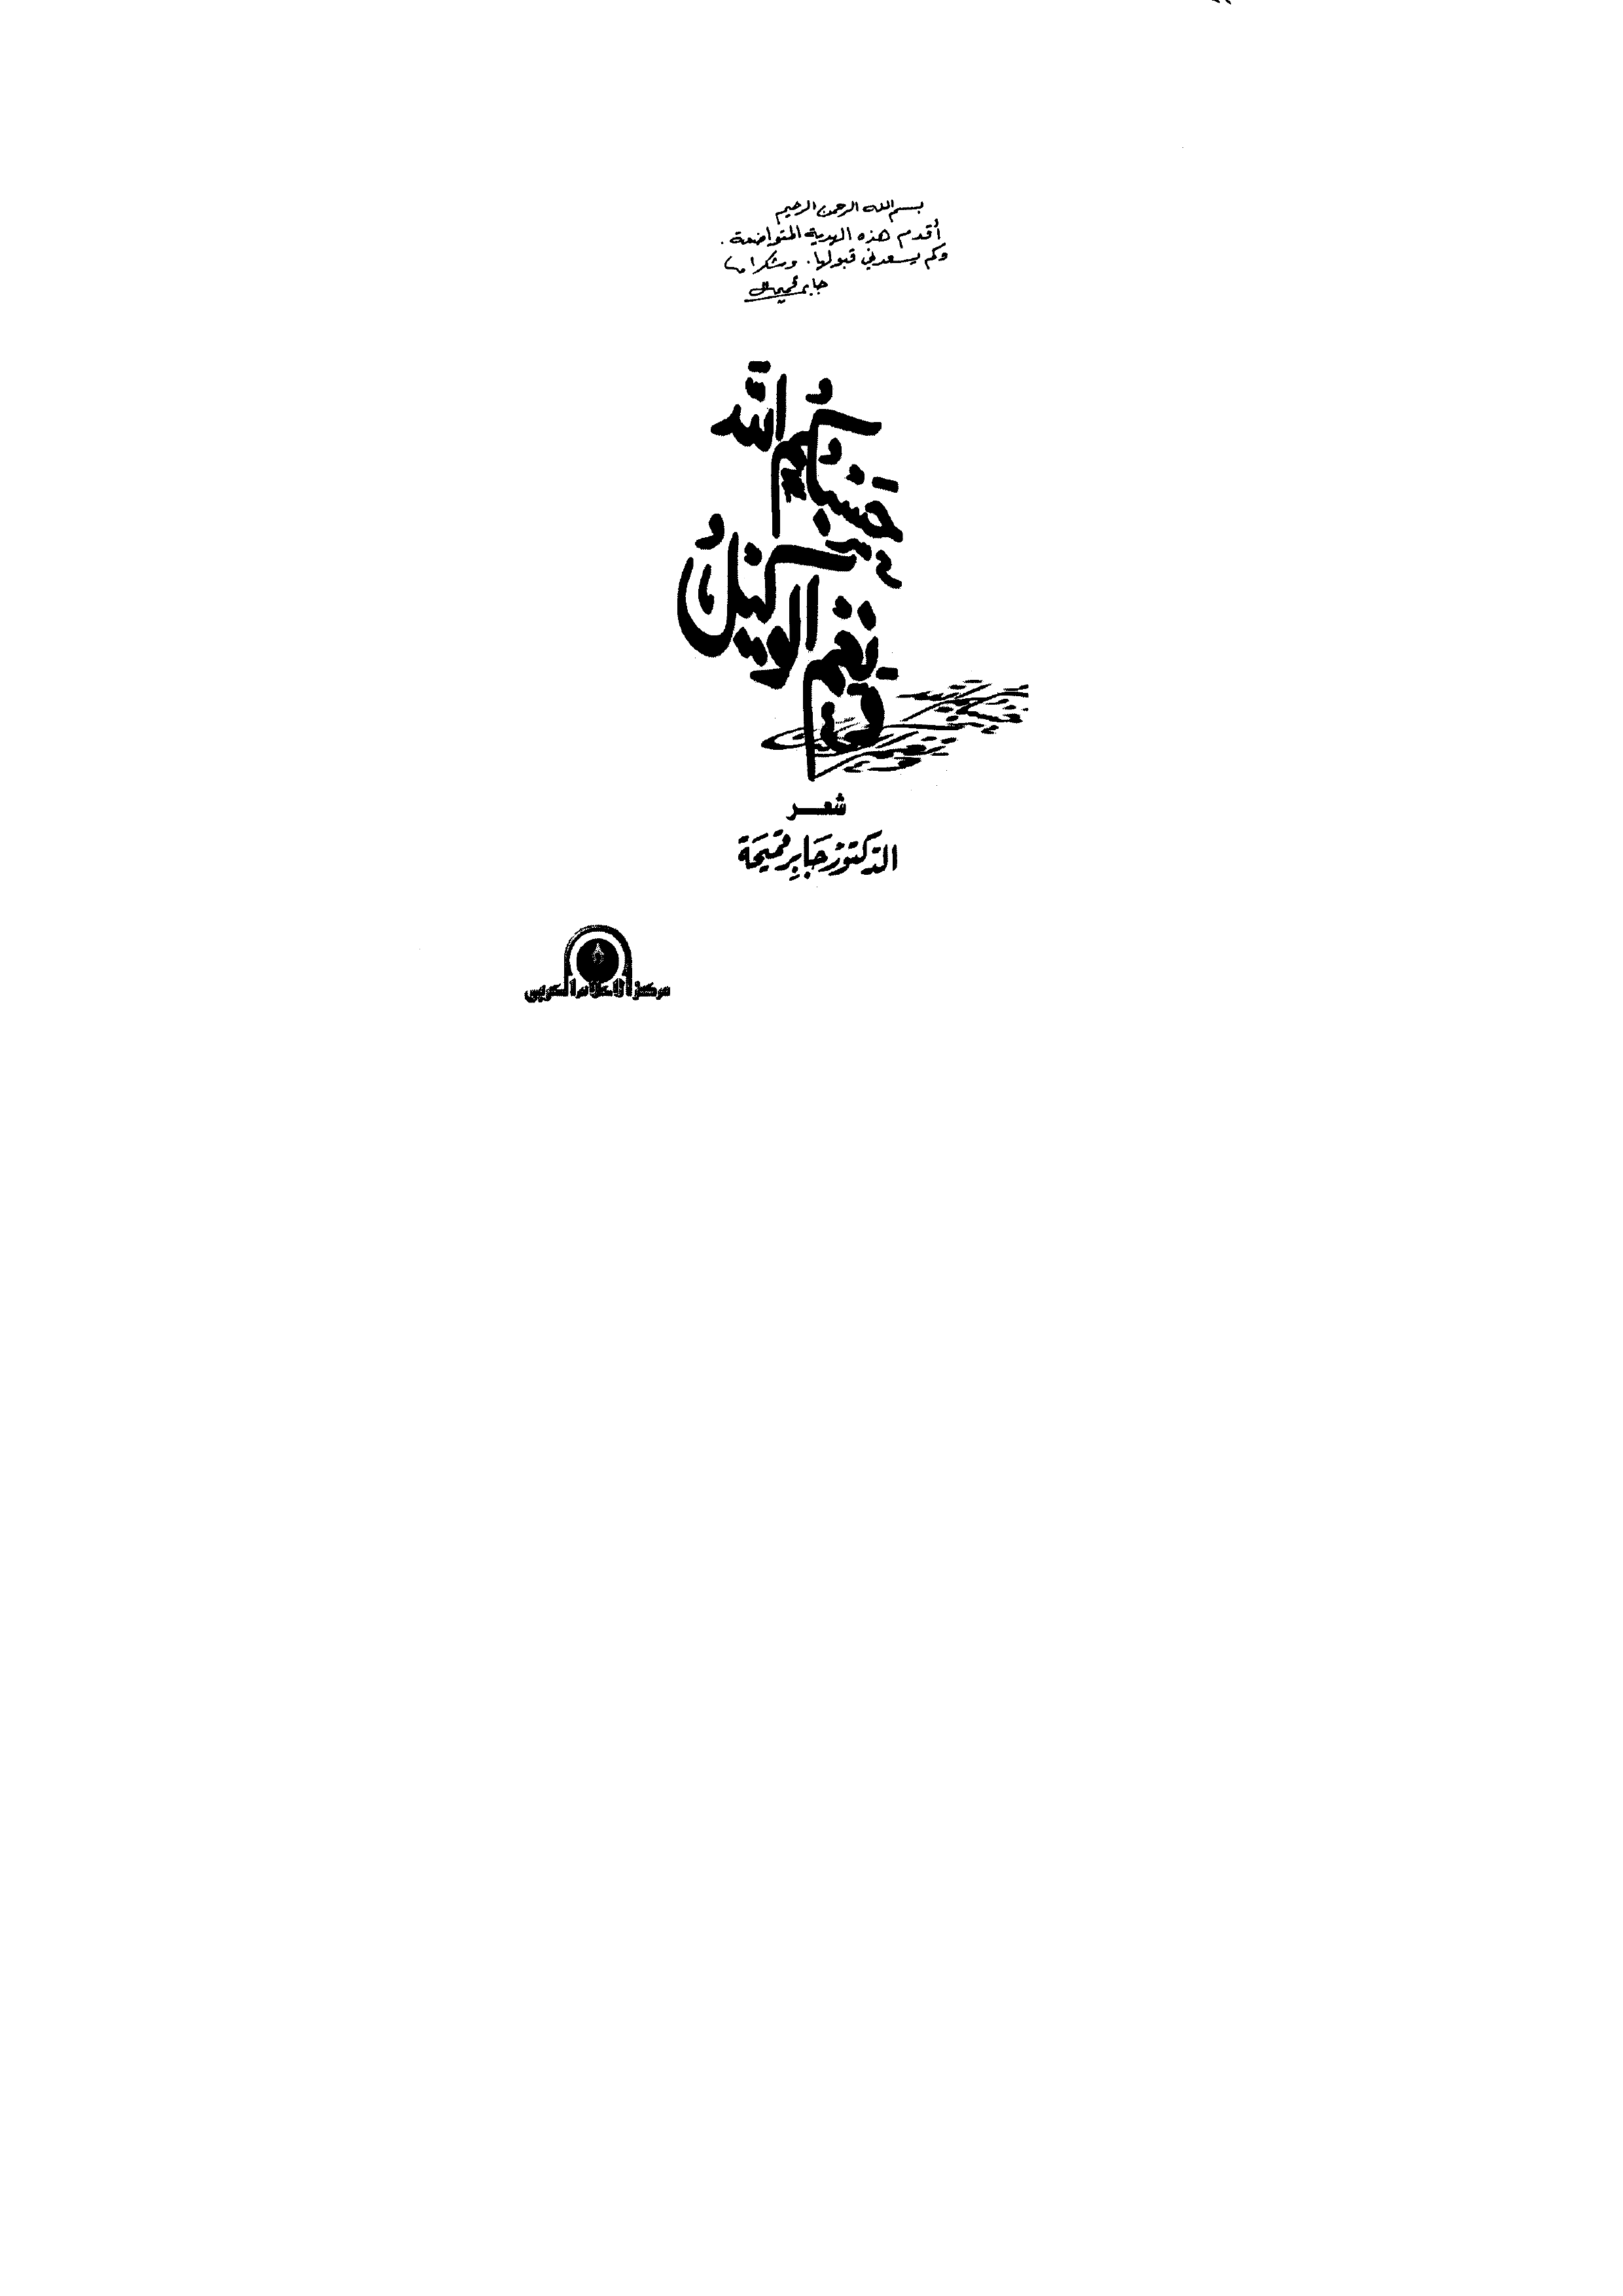 بسم الله الرحمن الرحيم
أقدم هذه الهدية المتواضعة .
وكم يسعدني قبولها . وشكرا
جابر قميحة
حَسْبُكُمُ اللّٰه
وَنِعْمَ الْوَكِيْلُ
شعـــر
الدّكتور جَابِر قميحَة
مركز الإعلام العربي